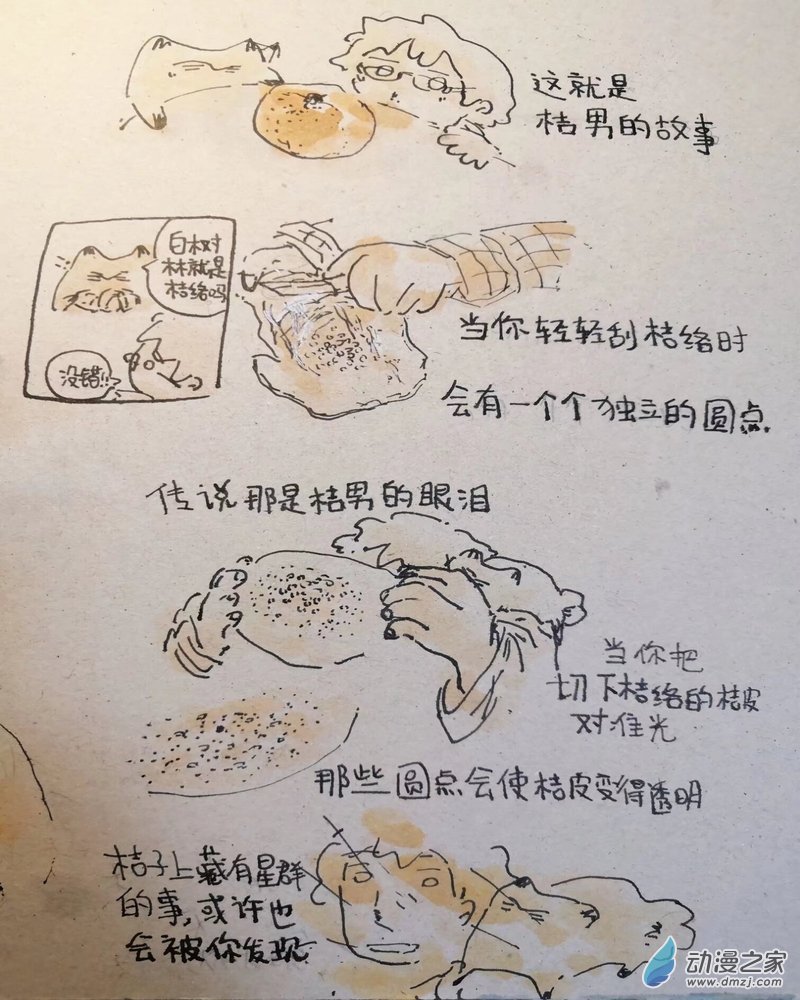 这就是
桔男的故事
白树
林就是
桔络吗
没错!!
当你轻轻刮桔络时
会有一个个独立的圆点.
传说那是桔男的眼泪
当你把
切下桔络的桔皮
对准光
那些圆点会使桔皮变得透明
桔子上藏有星群
的事,或许也
会被你发现
动漫之家
www.dmzj.com